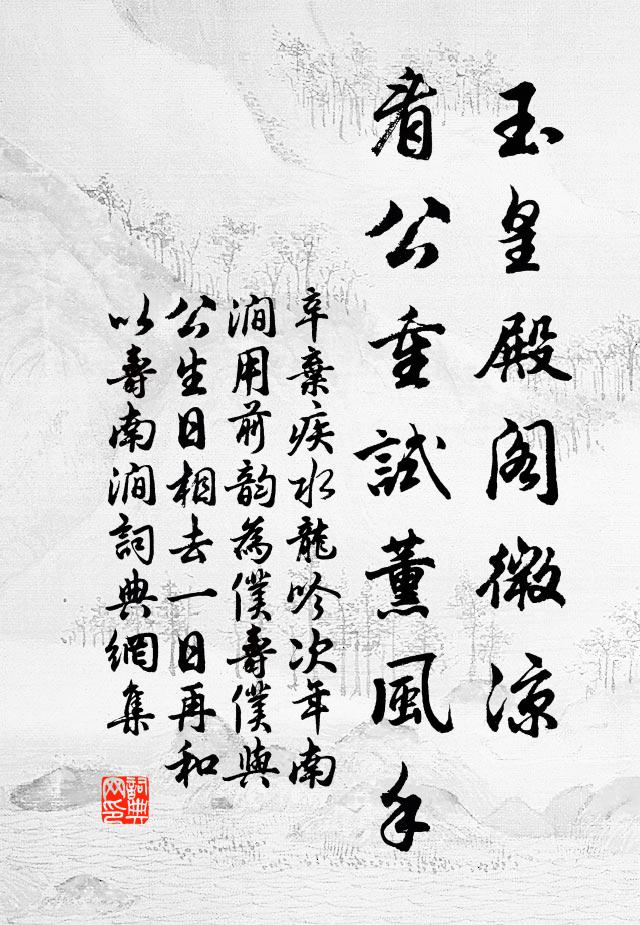 玉皇殿阁微涼
看公重試薰風手
辛棄疾水龍吟次年南
澗用前韵為僕壽僕與
公生日相去一日再和
以壽南澗詞典網集
詞典
网印